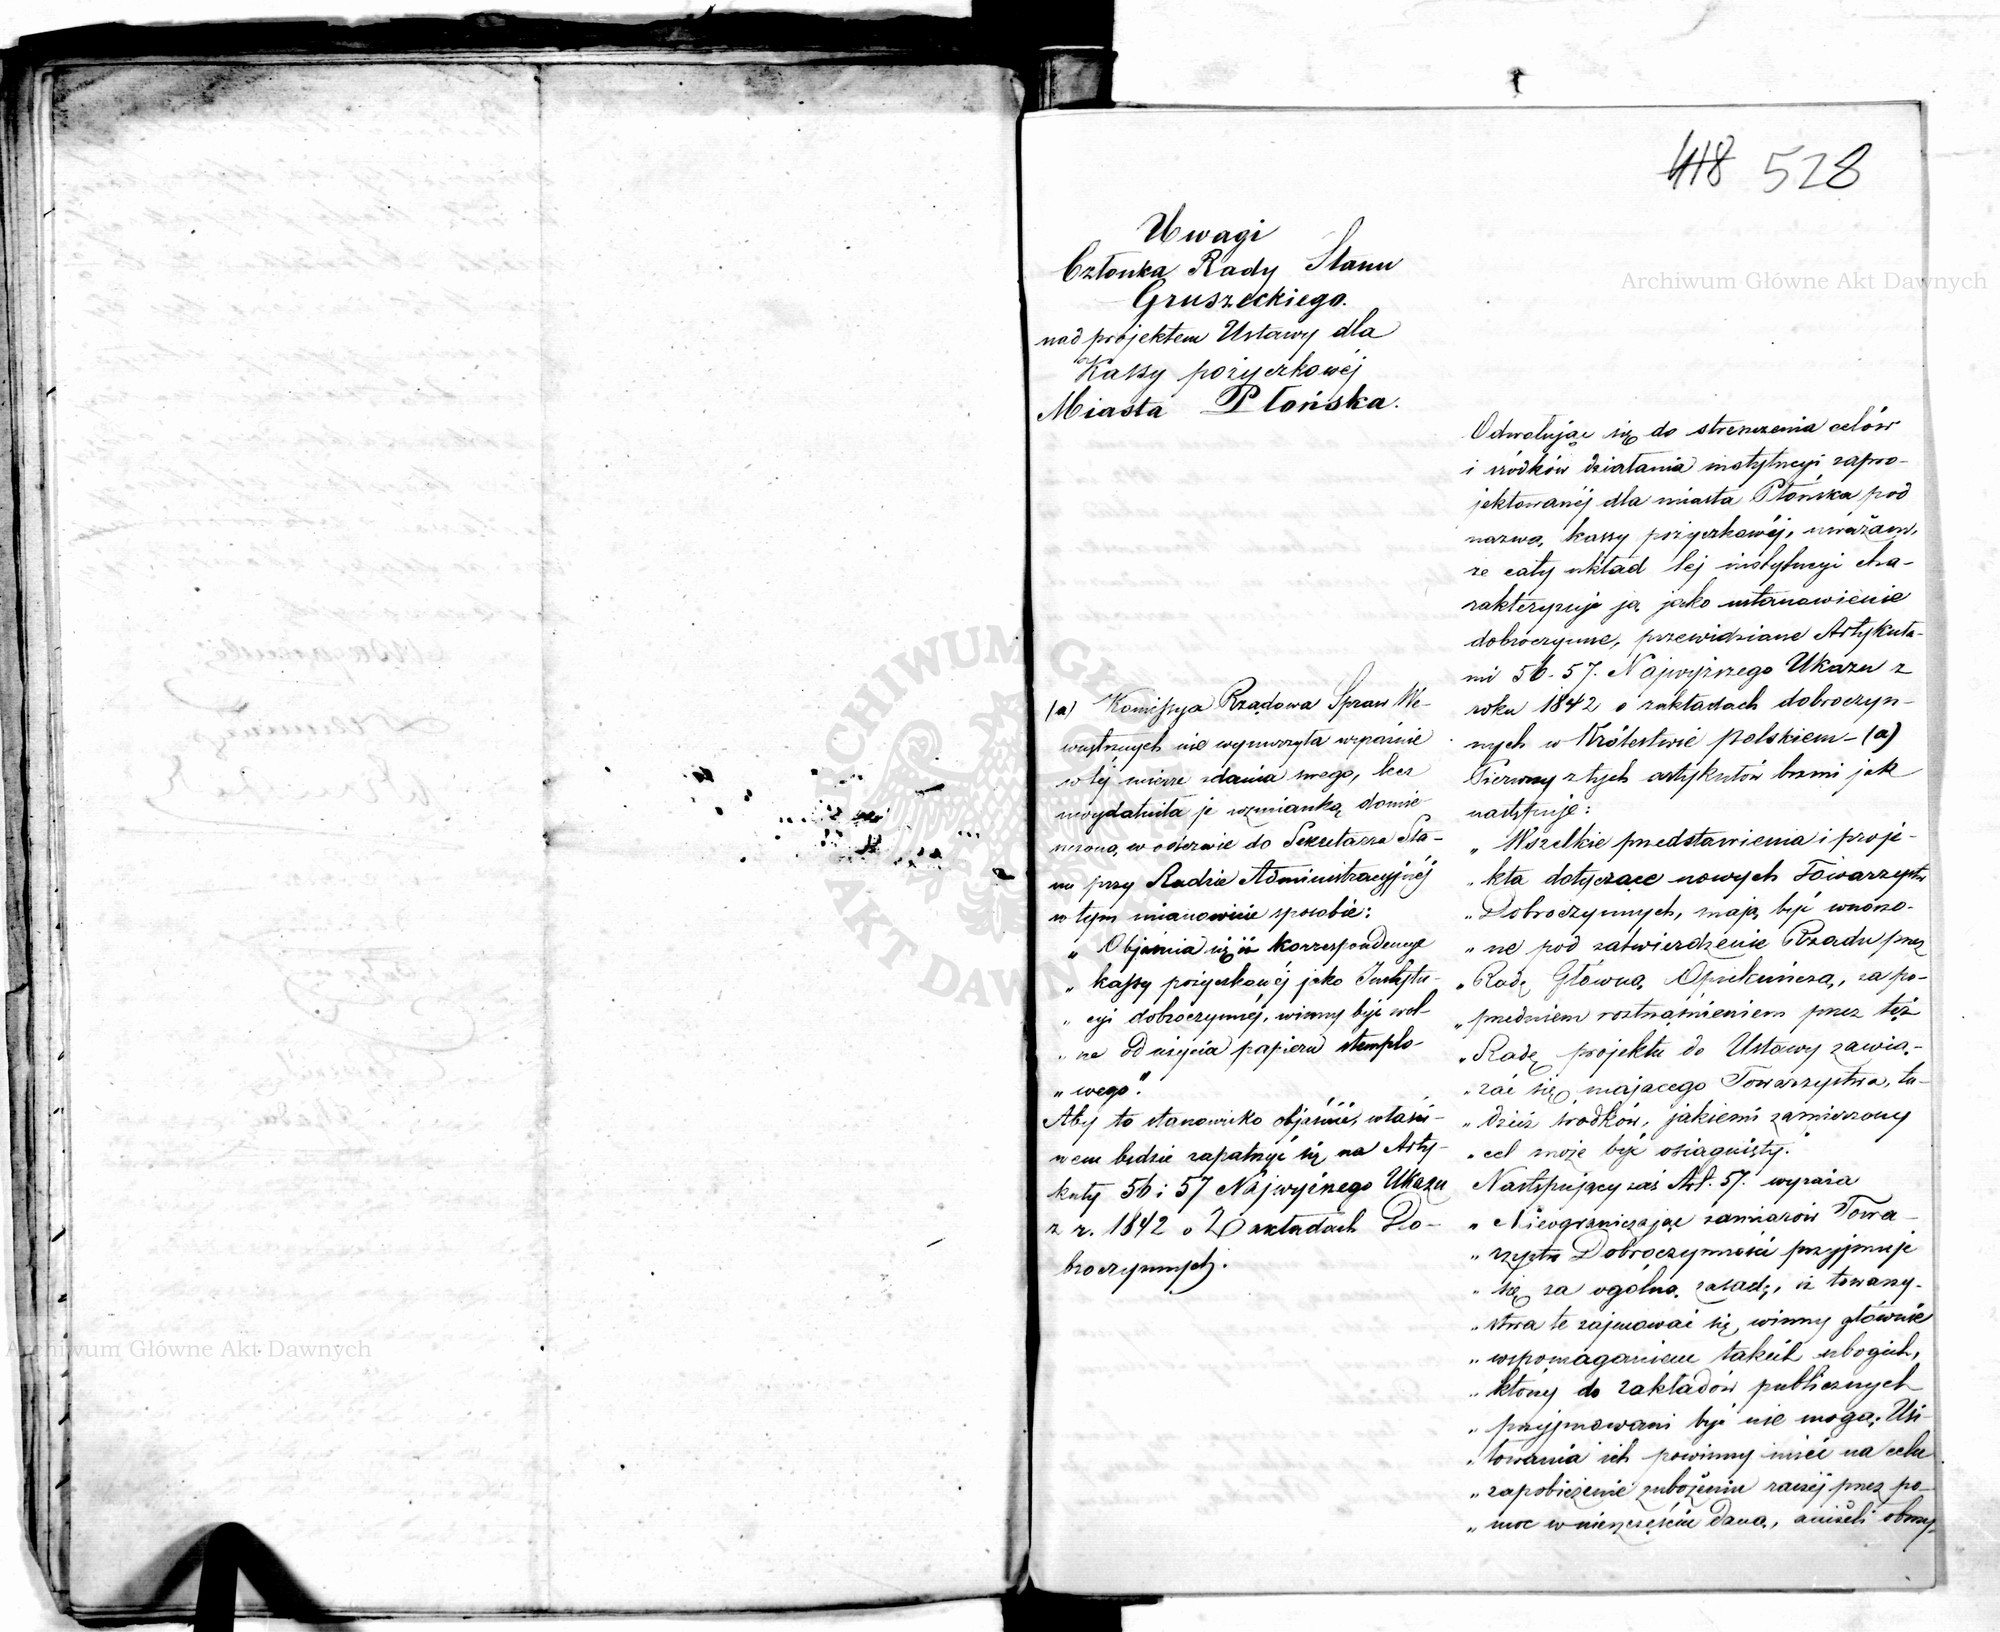 418 528
Uwagi
Członka Rady Stanu
Gruszeckiego.
nad projektem Ustawy dla
Kassy pożyczkowéj
Miasta Płońska.
(a) Komissya Rządowa Spraw We-
wnętrznych nie wynurzyła wyraźnie
w téj mierze zdania swego, lecz
uwydatniła je wzmianką domie-
szczoną w odezwie do Sekretarza Sta-
nu przy Radzie Administracyjnéj
w tym mianowicie sposobie:
„ Objaśnia się iż korrespondencye
„ kassy pożyczkowéj jako Instytu-
„ cyi dobroczynnéj, winny być wol-
„ ne od użycia papieru stemplo-
„ wego".
Aby to stanowisko objaśnić, właści-
wem będzie zapatrzyć się na Arty-
kuły 56 i 57 Najwyższego Ukazu
z r. 1842 o Zakładach Do-
broczynnych.
Odwołując się do streszczenia celów
i środków działania instytucyi zapro-
jektowanéj dla miasta Płońska pod
nazwą kassy pożyczkowéj, uważam,
że cały układ téj instytucyi cha-
rakteryzuje ją jako ustanowienie
dobroczynne, przewidziane Artykuła-
mi 56-57. Najwyższego Ukazu z
roku 1842 o zakładach dobroczyn-
nych w Królestwie polskiem - (a)
Pierwszy z tych artykułów brzmi jak
następuje:
„ Wszelkie przedstawienia i proje-
„ kta dotyczące nowych Towarzystw
„ Dobroczynnych, mają być wnoszo-
„ ne pod zatwierdzenie Rządu przez
„ Radę Główną Opiekuńczą, za po-
„ przedniem roztrząśnieniem przez też
„ Radę projektu do Ustawy zawią-
„ zać się mającego Towarzystwa, tu-
„ dzież środków, jakiemi zamierzony
„ cel może być osiągnięty."
Następujący zaś Art. 57. wyraża
„ Nieograniczając zamiarów Towa-
„ rzystw Dobroczynności przyjmuje
„ się za ogólną zasadę, iż towarzy-
„ stwa te zajmować się winny głównie
„ wspomaganiem takich ubogich,
„ którzy do zakładów publicznych
„ przyjmowani być nie mogą; Usi-
„ łowania ich powinny mieć na celu
„ zapobieżenie zubożeniu raczéj przez po-
„ moc w nieszczęściu daną, aniżeli obmy-
Archiwum Główne Akt Dawnych
Archiwum Główne Akt Dawnych
ARCHIWUM GŁÓWNE AKT DAWNYCH